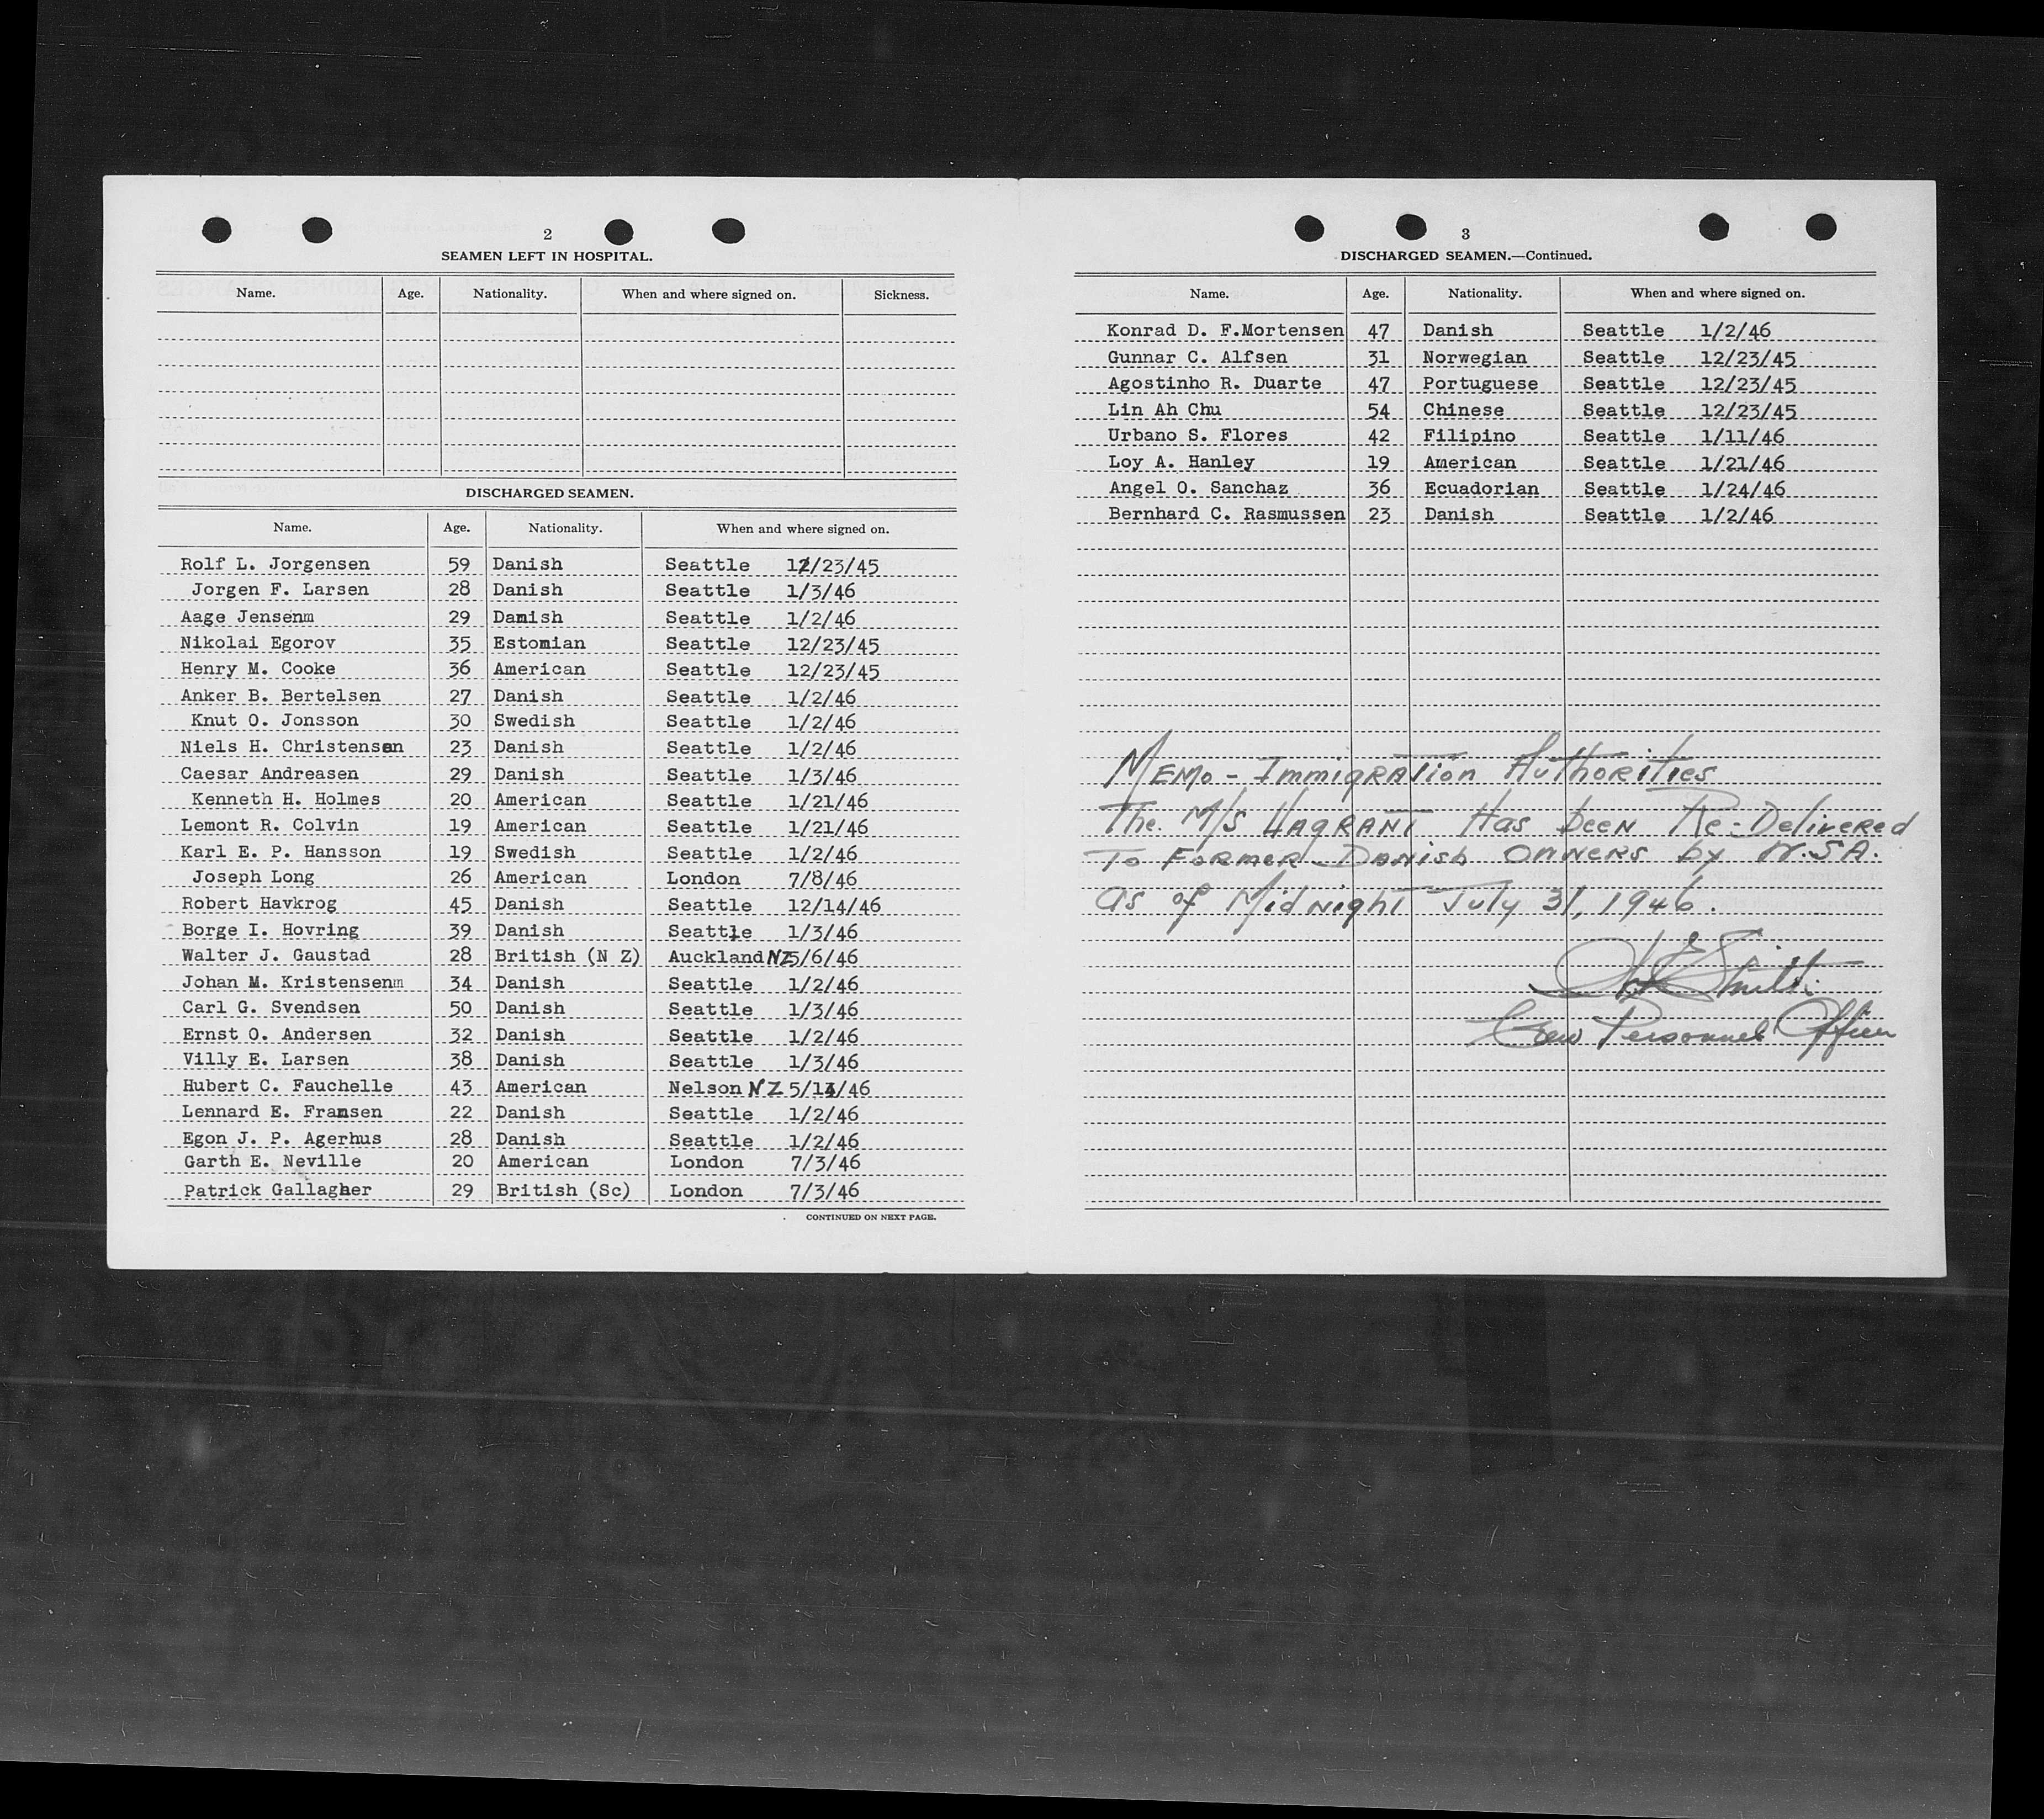 2
SEAMEN LEFT IN HOSPITAL.
Name. Age. Nationality. When and where signed on. Sickness.
DISCHARGED SEAMEN.
Name. Age. Nationality. When and where signed on.
Rolf L. Jorgensen 59 Danish Seattle 12/23/45
Jorgen F. Larsen 28 Danish Seattle 1/3/46
Aage Jensenm 29 Danish Seattle 1/2/46
Nikolai Egorov 35 Estonian Seattle 12/23/45
Henry M. Cooke 36 American Seattle 12/23/45
Anker B. Bertelsen 27 Danish Seattle 1/2/46
Knut O. Jonsson 30 Swedish Seattle 1/2/46
Niels H. Christensen 23 Danish Seattle 1/2/46
Caesar Andreasen 29 Danish Seattle 1/3/46
Kenneth H. Holmes 20 American Seattle 1/21/46
Lemont R. Colvin 19 American Seattle 1/21/46
Karl E. P. Hansson 19 Swedish Seattle 1/2/46
Joseph Long 26 American London 7/8/46
Robert Havkrog 45 Danish Seattle 12/14/46
Borge I. Hovring 39 Danish Seattle 1/3/46
Walter J. Gaustad 28 British (N Z) Auckland NZ 5/6/46
Johan M. Kristensenm 34 Danish Seattle 1/2/46
Carl G. Svendsen 50 Danish Seattle 1/3/46
Ernst O. Andersen 32 Danish Seattle 1/2/46
Villy E. Larsen 38 Danish Seattle 1/3/46
Hubert C. Fauchelle 43 American Nelson NZ
Lennard E. Fransen 22 Danish Seattle 1/2/46
Egon J. P. Agerhus 28 Danish Seattle 1/2/46
Garth E. Neville 20 American London 7/3/46
Patrick Gallagher 29 British (Sc) London 7/3/46
CONTINUED ON NEXT PAGE.
3
DISCHARGED SEAMEN.—Continued.
Name. Age. Nationality. When and where signed on.
Konrad D. F.Mortensen 47 Danish Seattle 1/2/46
Gunnar C. Alfsen 31 Norwegian Seattle 12/23/45
Agostinho R. Duarte 47 Portuguese Seattle 12/23/45
Lin Ah Chu 54 Chinese Seattle 12/23/45
Urbano S. Flores 42 Filipino Seattle 1/11/46
Loy A. Hanley 19 American Seattle 1/21/46
Angel O. Sanchaz 36 Ecuadorian Seattle 1/24/46
Bernhard C. Rasmussen 23 Danish Seattle 1/2/46
Memo - Immigration Authorities
The M/S Has been Re-Delivered
To Former Danish Owners by W.S.A.
as of Midnight July 31, 1946.
Smith
Crew Personnel Officer